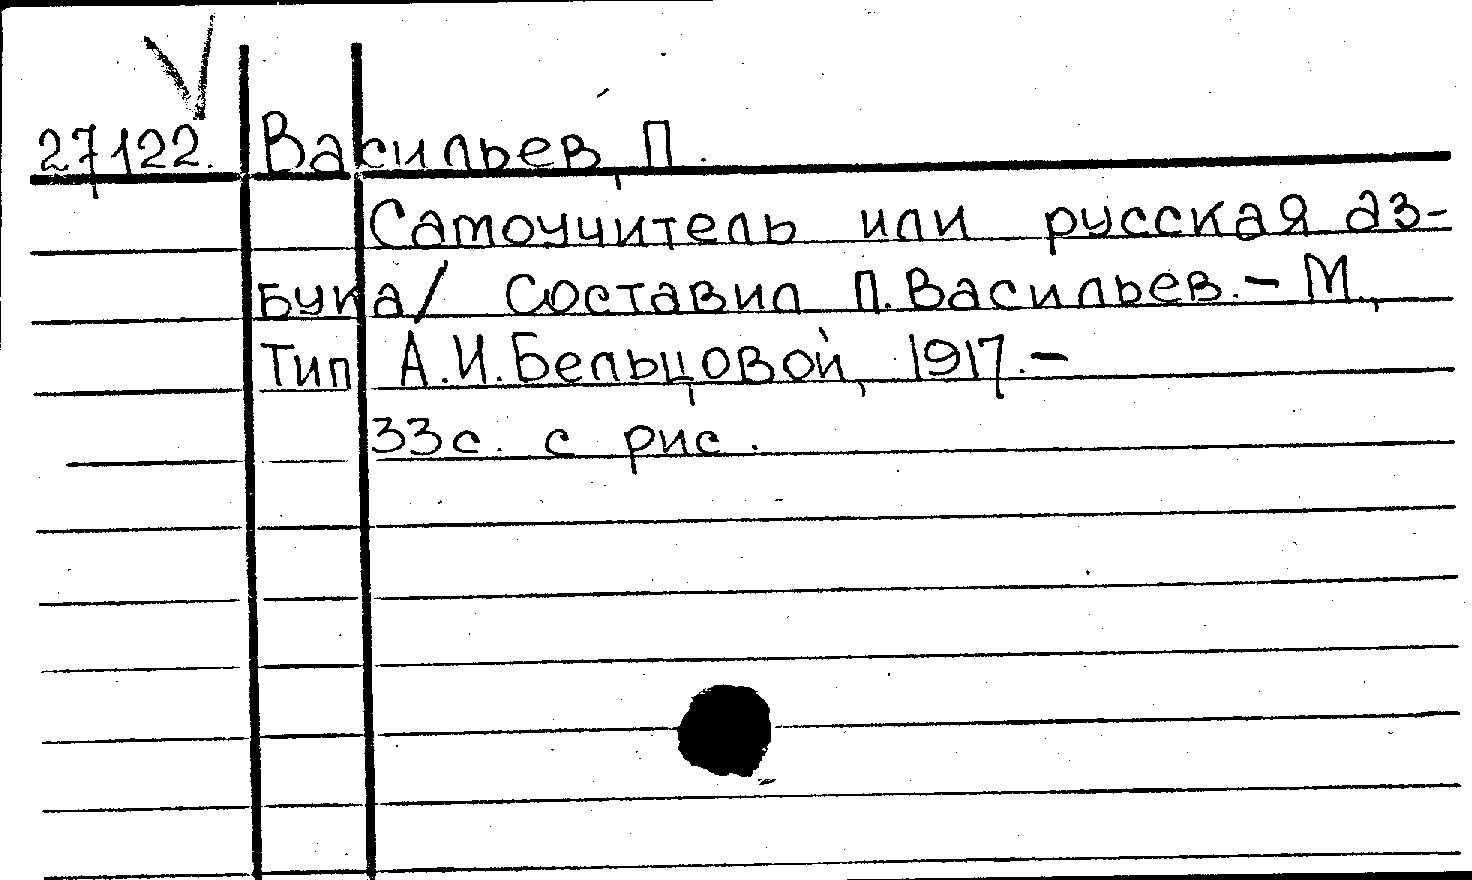 27122. Васильев, П.
Самоучитель или русская аз-
бука/ Составил П.Васильев.- М.,
Тип А.И.Бельцовой, 1917.-
33с. с рис.